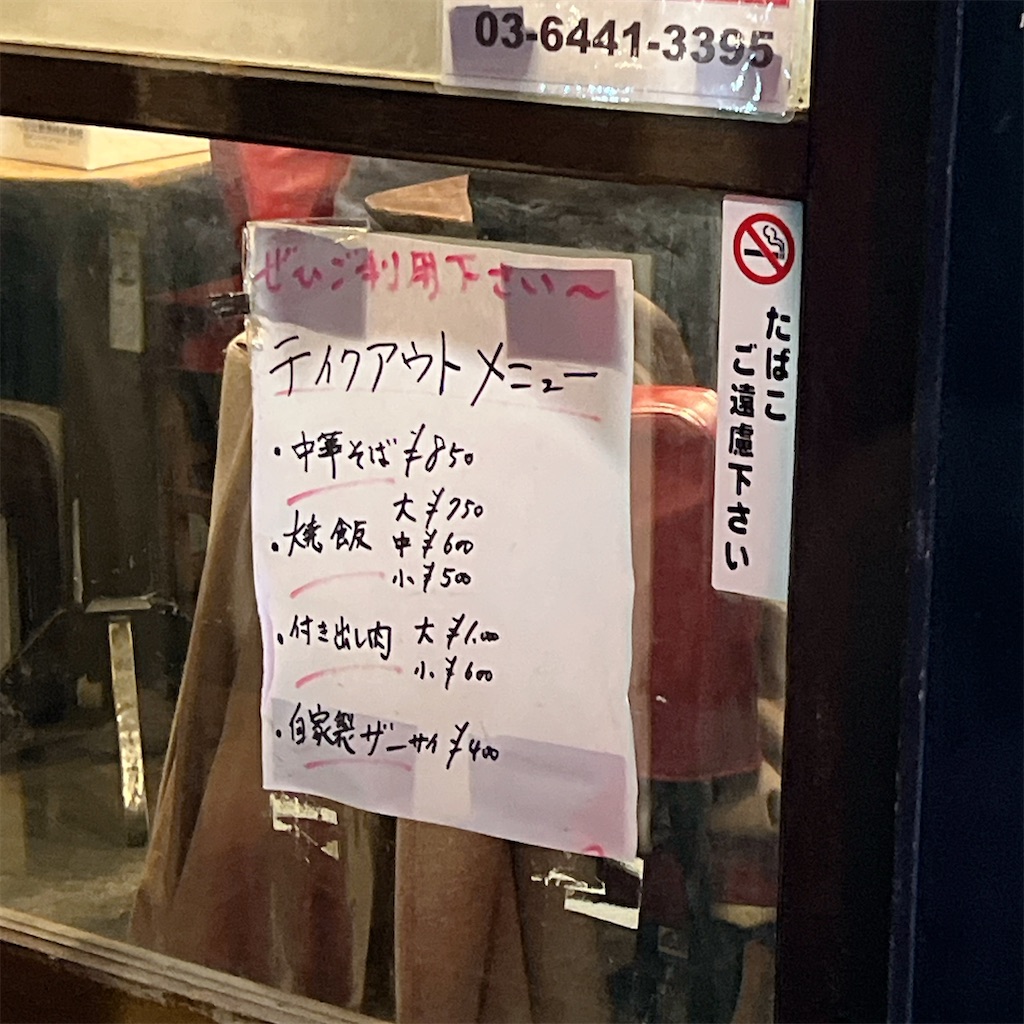 03-6441-3395
ぜひご利用下さい～
テイクアウトメニュー
・中華そば ¥850
大 ¥750
・焼飯 中 ¥600
小 ¥500
・付き出し肉 大 ¥1.000
小 ¥600
・自家製ザーサイ ¥400
たばこ
ご遠慮下さい